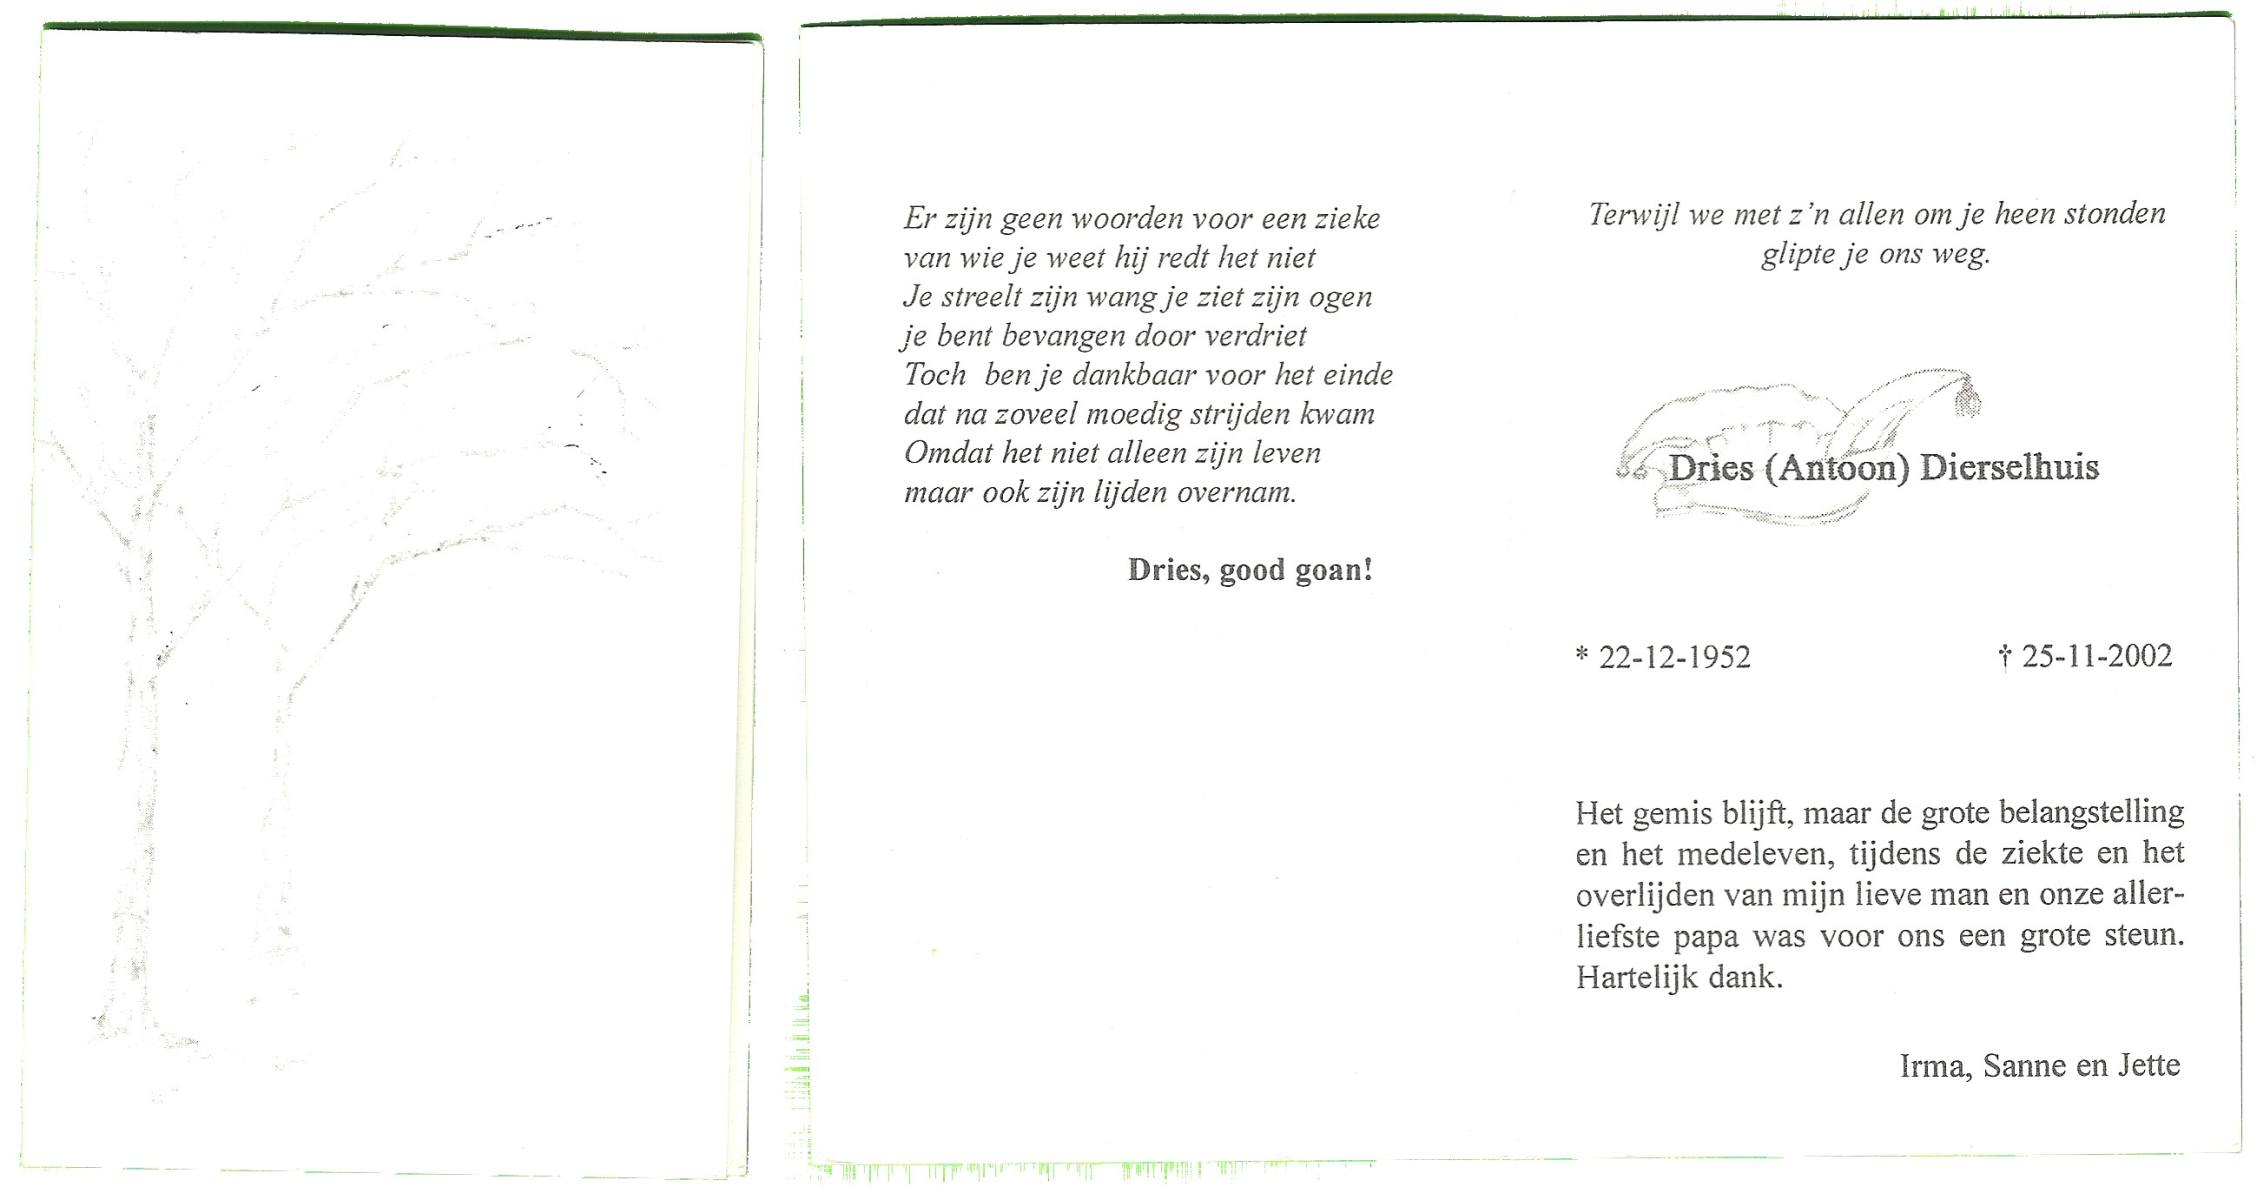 Er zijn geen woorden voor een zieke
van wie je weet hij redt het niet
Je streelt zijn wang je ziet zijn ogen
je bent bevangen door verdriet
Toch ben je dankbaar voor het einde
dat na zoveel moedig strijden kwam
Omdat het niet alleen zijn leven
maar ook zijn lijden overnam.
Dries, good goan!
Terwijl we met z'n allen om je heen stonden
glipte je ons weg.
Dries (Antoon) Dierselhuis
* 22-12-1952 † 25-11-2002
Het gemis blijft, maar de grote belangstelling
en het medeleven, tijdens de ziekte en het
overlijden van mijn lieve man en onze aller-
liefste papa was voor ons een grote steun.
Hartelijk dank.
Irma, Sanne en Jette